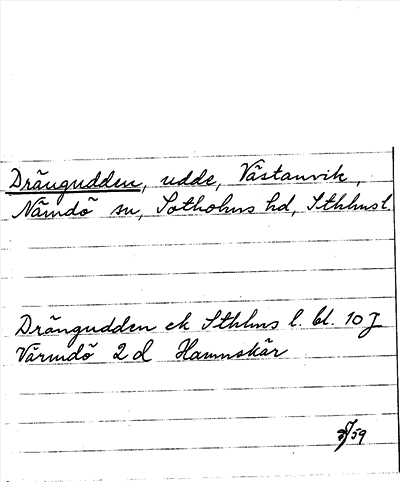 Drängudden, udde, Västanvik,
Nämdö sn, Sotholms hd, Sthlmsl.
Drängudden ek Sthlms l. bl. 10 J
Värmdö 2 d Hamnskär
59